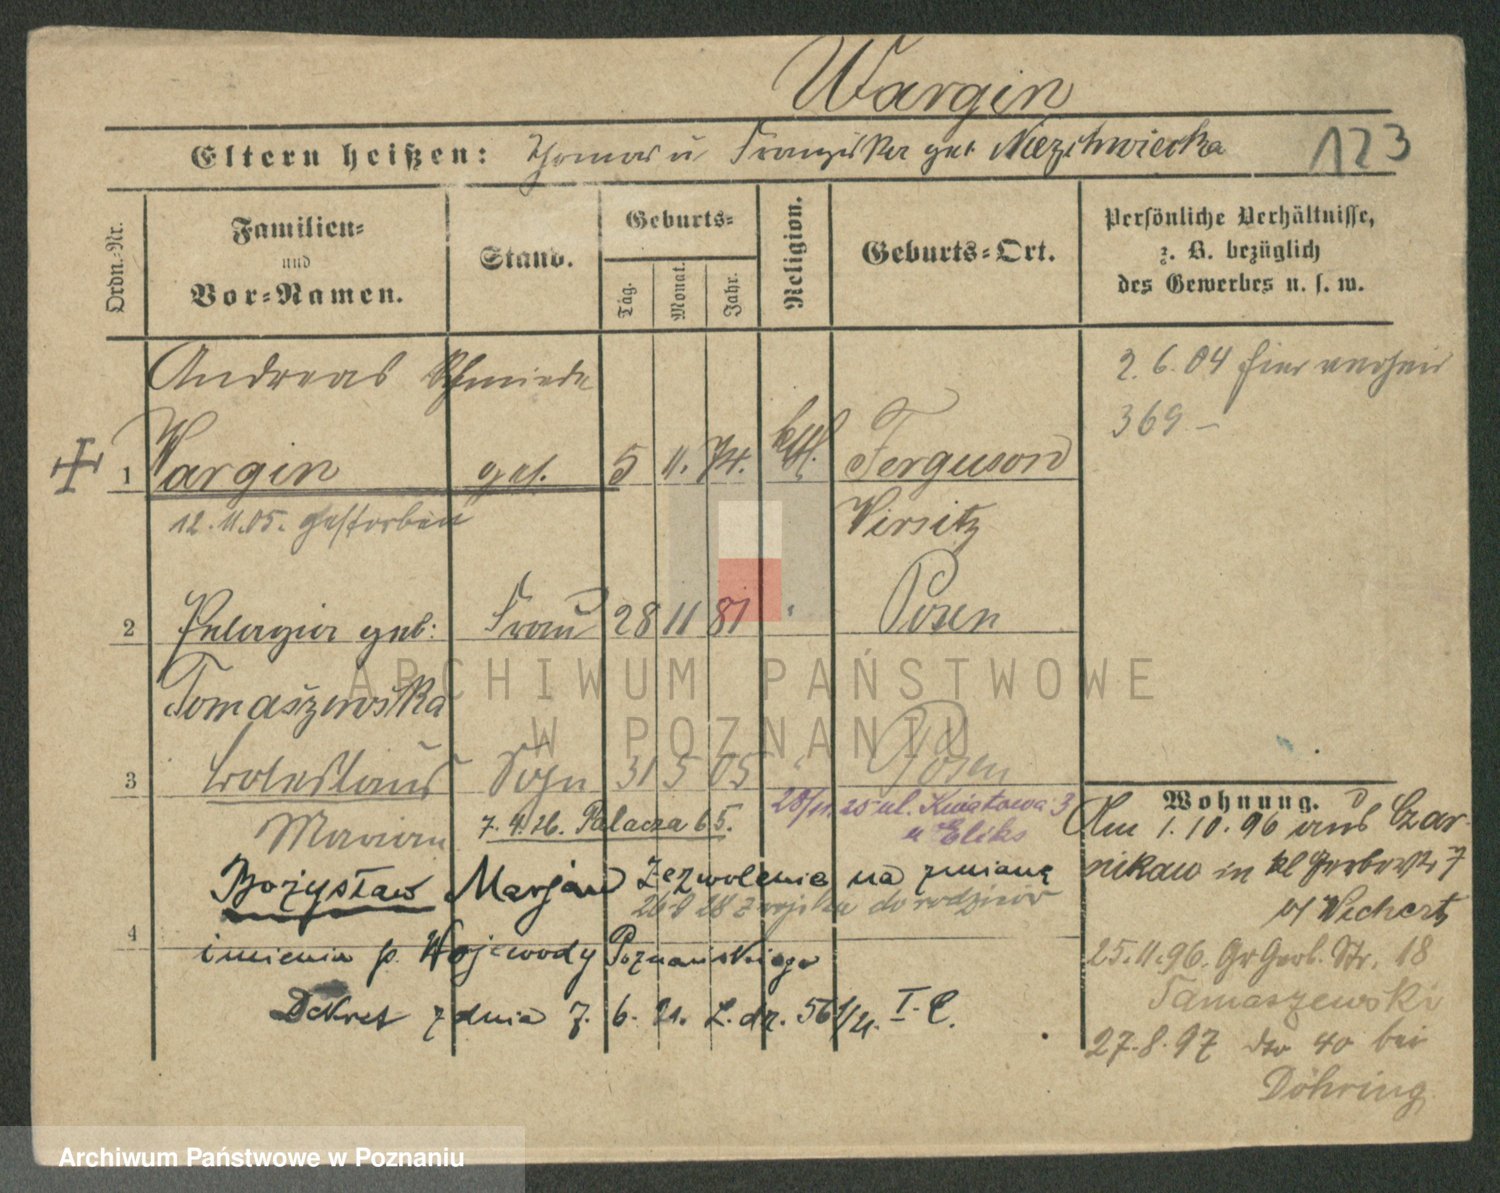 Wargin
Eltern heißen: Thomas u Franziska geb Niezchwiecka
123
Ordn.-Nr.
Familien- und Vor-Namen.
Stand.
Geburts-
Tag.
Monat.
Jahr.
Religion.
Geburts-Ort.
Persönliche Verhältnisse, z. B. bezüglich des Gewerbes u. s. w.
Andreas Schmiede
2.6.04 hier verheir
369 –
1 Wargin ges. 5 11. 74. kth. Ferguson
12.11.05. gestorben
Wirsitz
2 Pelagia geb: Frau 28 11 81 Posen
Tomaszewska
3 Boleslaus Sohn 31 5 05 Posen
Wohnung.
Marian 7.4.26. Palacza 65.
28/11.25 ul. Kwiatowa 3
u Eliks
Am 1.10.96 aus Czar-
nikau in kl Gerberstr 7
b/ Wichert
Bożysław Marjan Zezwolenie na zmianę
z wojska do rodziców
4
imienia p. Wojewody Poznańskiego
25.11.96. Gr Gerb. Str. 18
Tamaszewski
Dekret z dnia 7. 6. 21. L. dz. 561/21. I. C.
27.8.97 do 40 bei
Döhring
ARCHIWUM PAŃSTWOWE
W POZNANIU
Archiwum Państwowe w Poznaniu